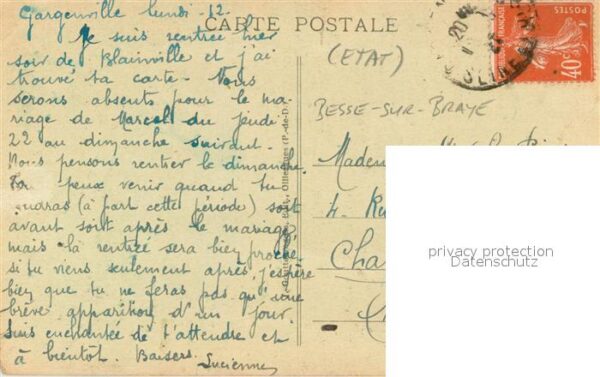 Gargenville lundi - 12
Je suis rentrée hier
soir de Blainville et j'ai
trouvé ta carte - Nous
serons absents pour le ma
riage de Marcel du jeudi
22 au dimanche suivant.
Nous pensons rentrer le dimanche.
Tu peux venir quand tu
voudras (à part cette période) soit
avant soit après le mariage
mais là rentrée sera bien proche
si tu viens seulement après, j'espère
bien que tu ne feras pas qu'une
brève apparition d'un jour.
Suis enchantée de t'attendre et
à bientôt. Baisers. Lucienne
CARTE POSTALE
(ETAT)
BESSE-SUR-BRAYE
Madem
4. Ru
Cha
POSTES
40c
privacy protection
Datenschutz